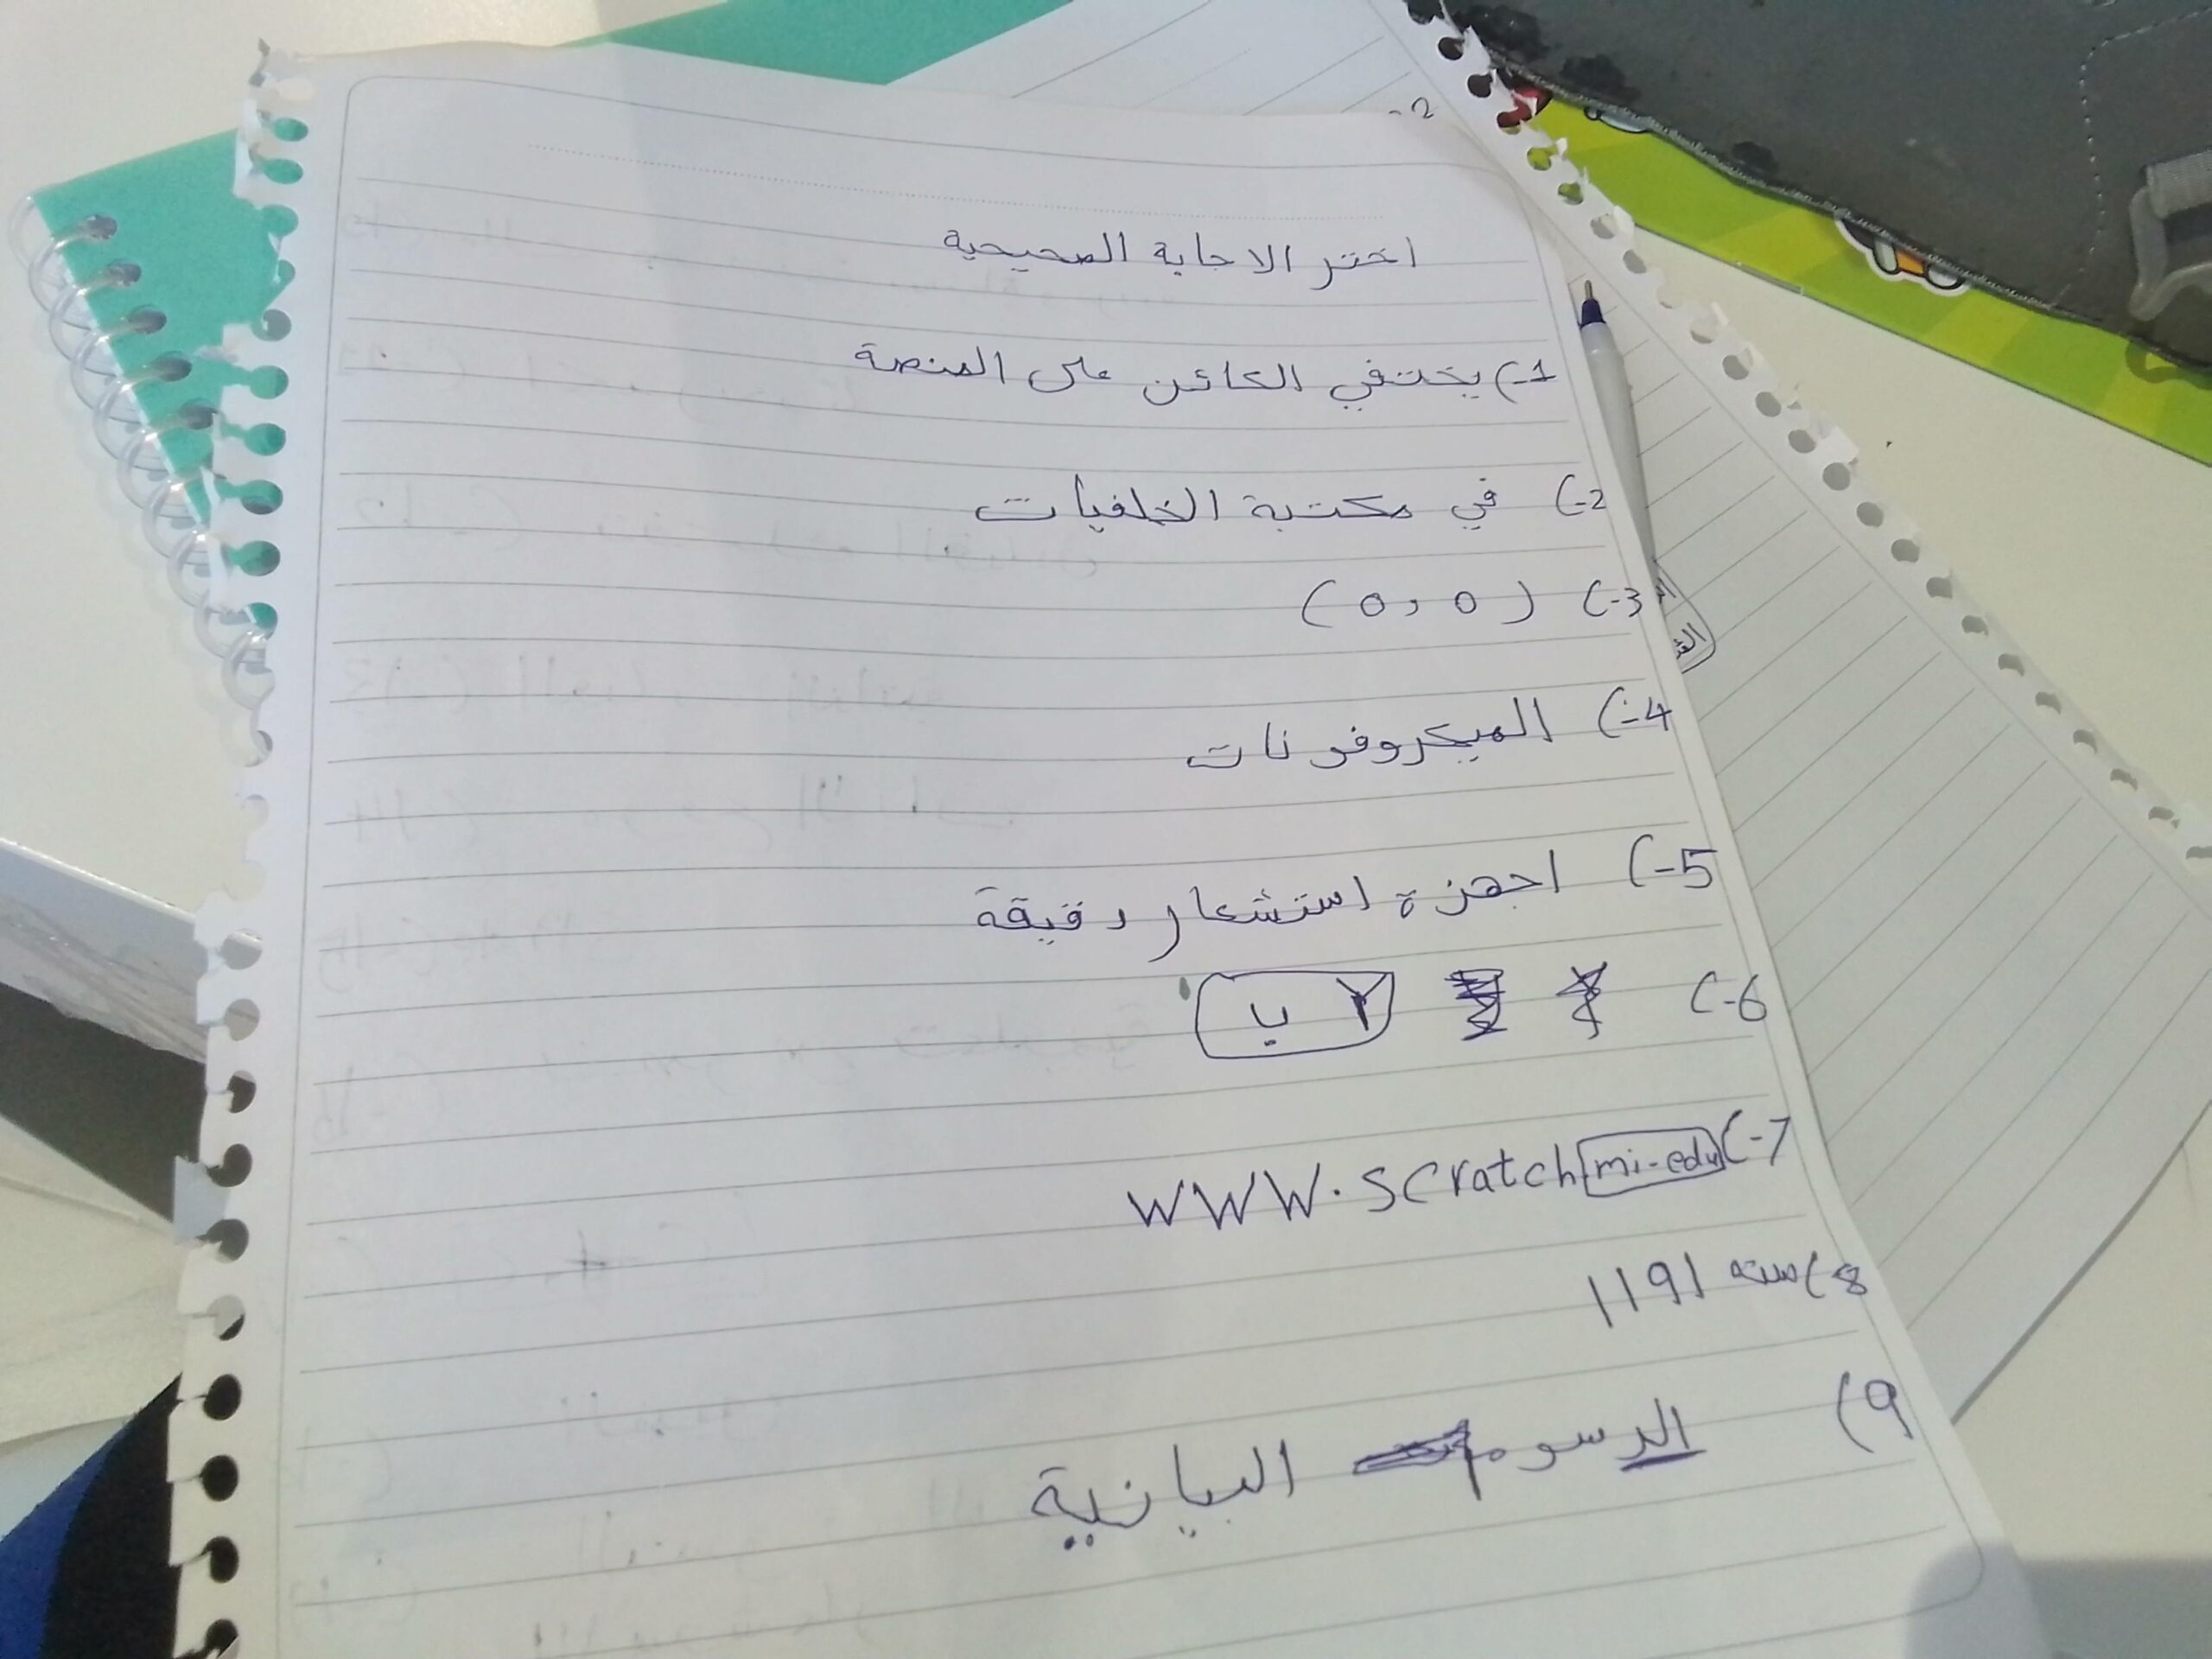 -2
اختر الاجابة الصحيحية
1-) يختفي الكائن على المنصة
2-) في مكتبة الخلفيات
3-) (0,0)
4-) الميكروفونات
5-) اجهزة استشعار دقيقة
6-)
7-) www.scratch mi-edu
8) سنه 1191
9) الرسوم البيانية